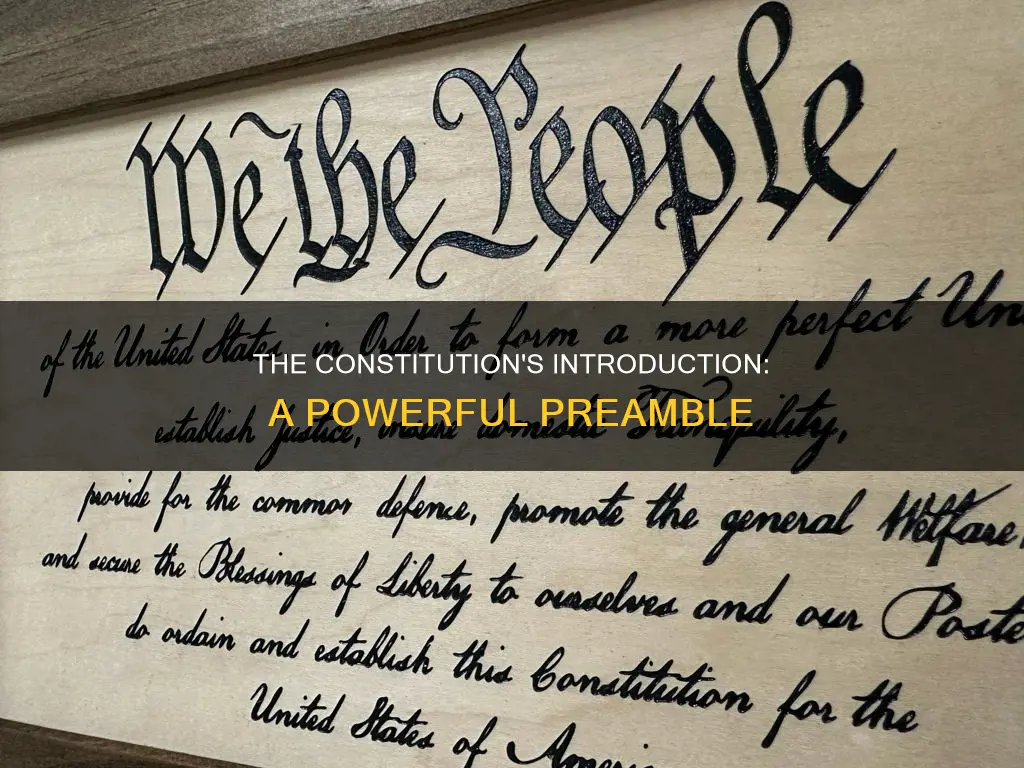 We the People
of the United States, in Order to form a more perfect Un
THE CONSTITUTION'S INTRODUCTION:
A POWERFUL PREAMBLE
establish Justice, insure domestic Tranquility,
provide for the common defence, promote the general Welfare,
and secure the Blessings of Liberty to ourselves and our Poste
do ordain and establish this Constitution for the
United States of Ameri